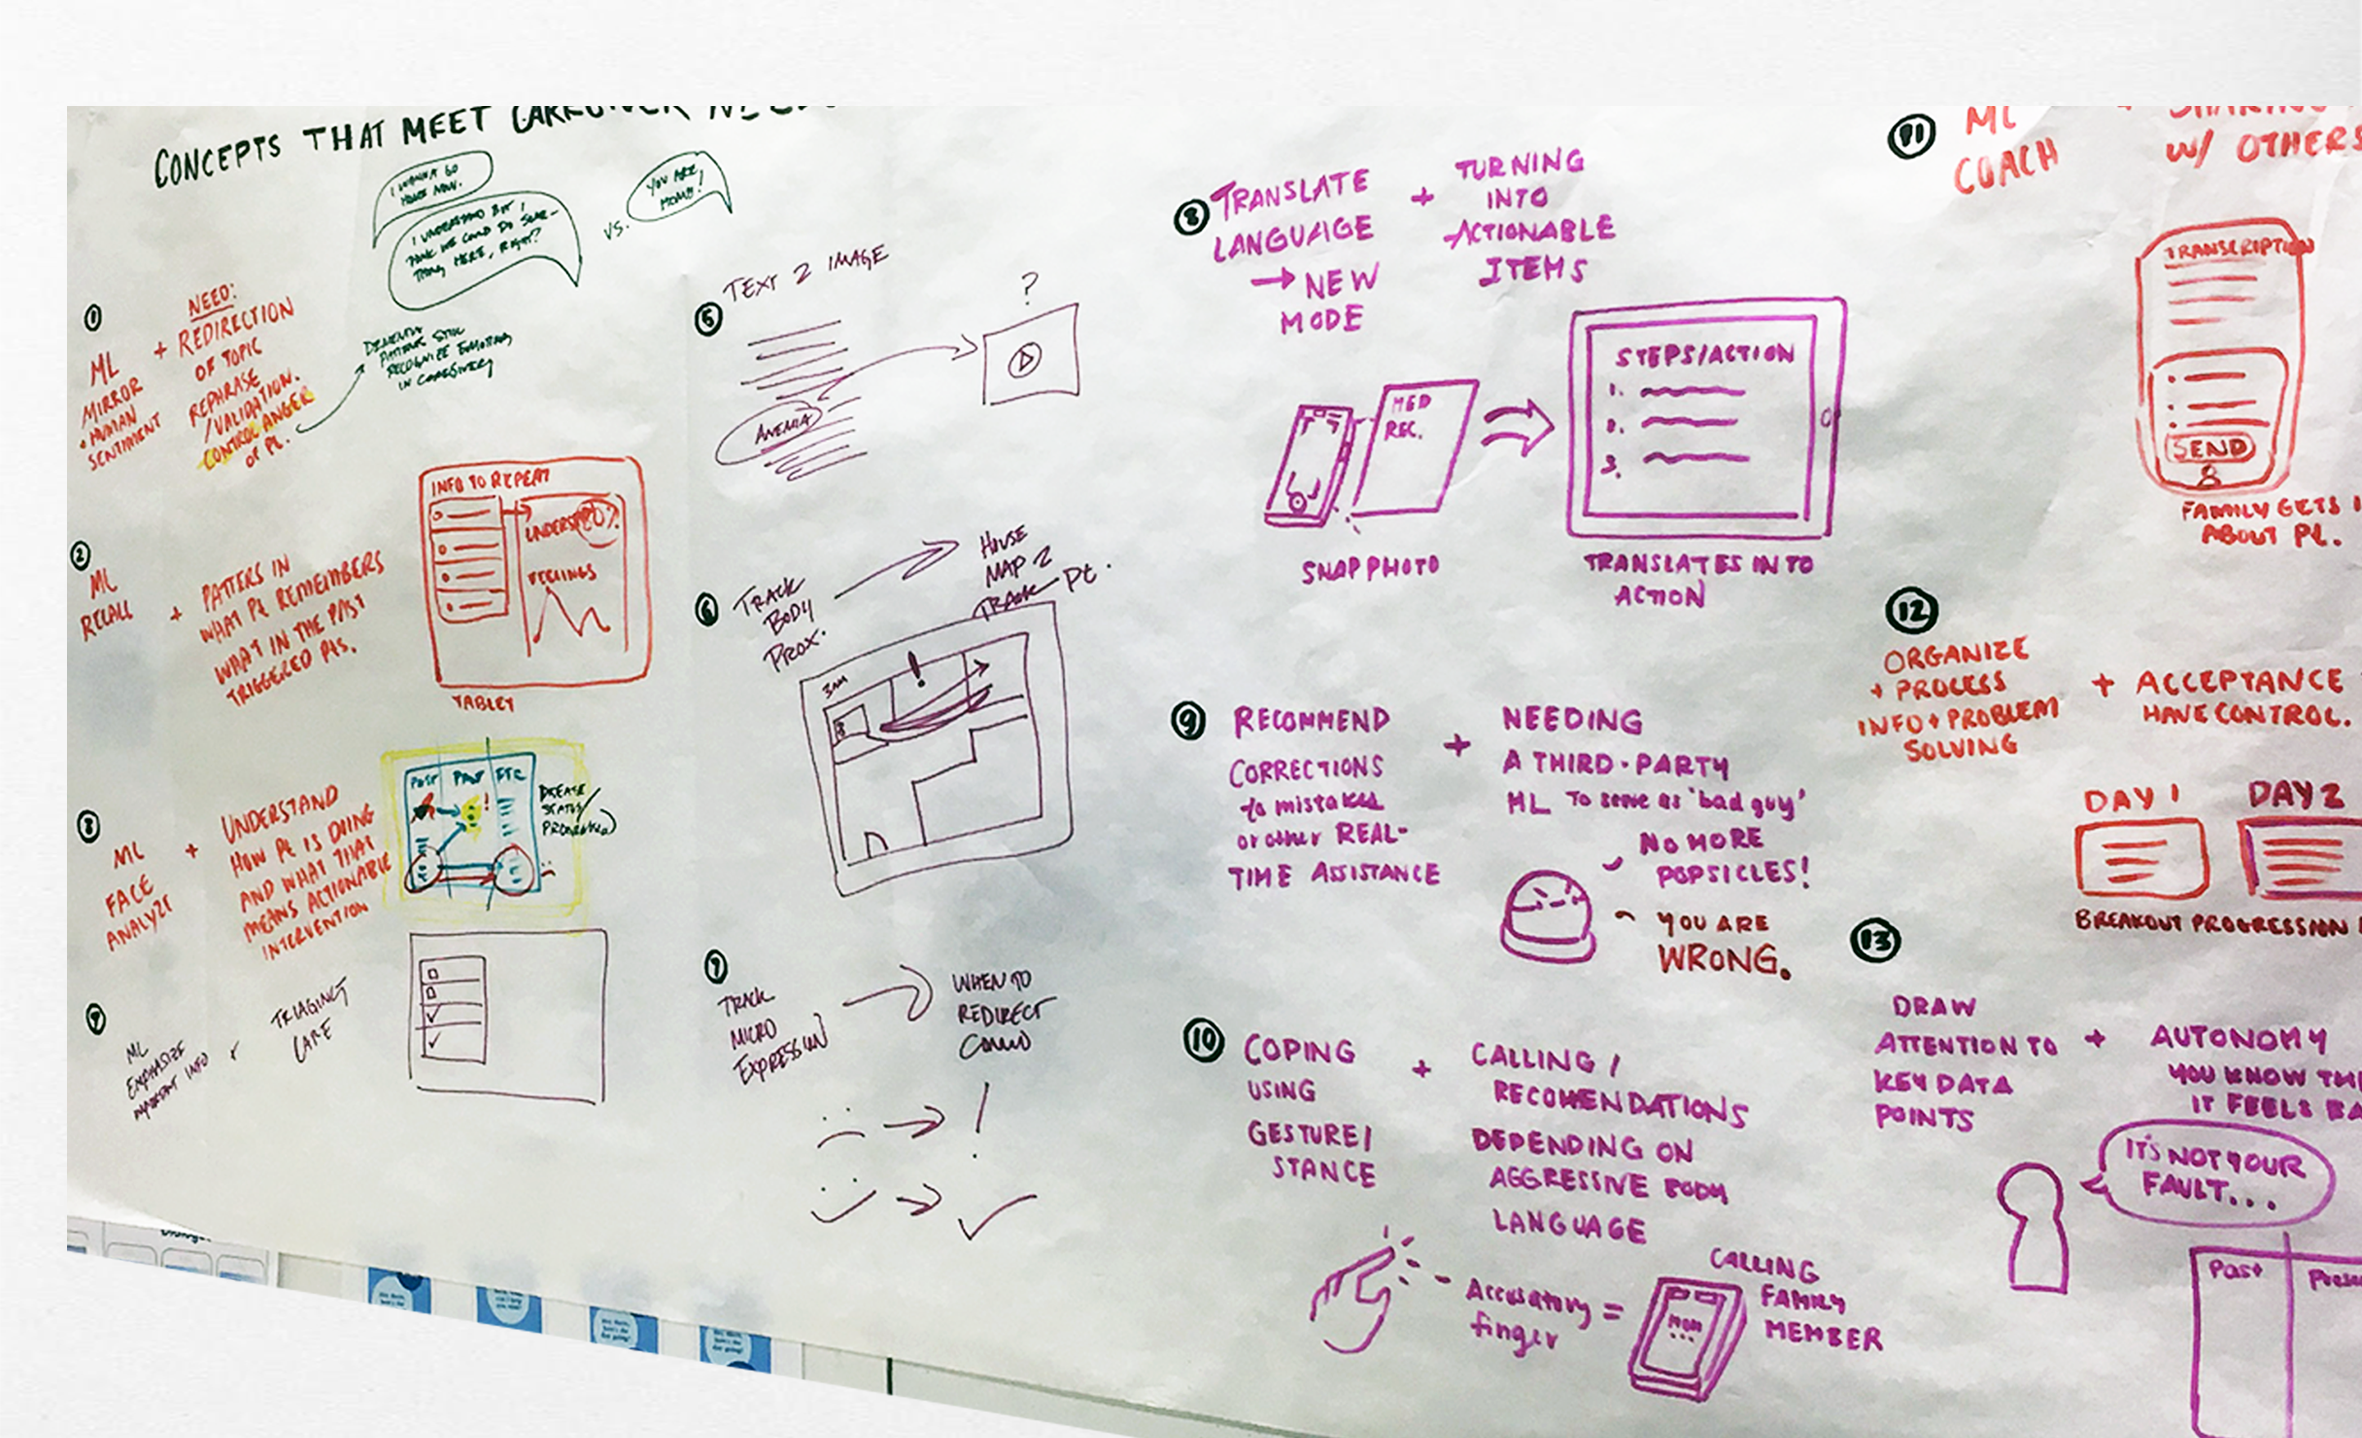 CONCEPTS THAT MEET
I WANNA GO
HOME NOW.
I UNDERSTAND BUT I
THINK WE COULD DO SOME-
THING HERE, RIGHT?
VS.
YOU ARE
HOME!
1
ML
MIRROR
• HUMAN
SENTIMENT
+
NEED:
REDIRECTION
OF TOPIC
REPHRASE
/VALIDATION.
CONTROL ANGER
OF Pt.
DEMENTIA
PATIENTS STILL
RECOGNIZE EMOTIONS
IN CAREGIVERS
2
ML
RECALL
+
PATTERS IN
WHAT Pt REMEMBERS
WHAT IN THE PAST
TRIGGERED Pts.
INFO TO REPEAT
UNDERSTAND
FEELINGS
TABLET
3
ML
FACE
ANALYZE
+
UNDERSTAND
HOW Pt IS DOING
AND WHAT THAT
MEANS ACTIONABLE
INTERVENTION
DISEASE
STATUS/
ML
EMPHASIZE
IMPORTANT INFO
+
TRIAGING
CARE
5
TEXT 2 IMAGE
?
ANEMIA
6
TRACK
BODY
PROX.
HOUSE
MAP 2
TRACK Pt.
3AM
!
7
TRACK
MICRO
EXPRESSION
WHEN TO
REDIRECT
CONVO
!
8
TRANSLATE
LANGUAGE
→ NEW
MODE
+
TURNING
INTO
ACTIONABLE
ITEMS
MED
REC.
STEPS/ACTION
1.
2.
3.
SNAP PHOTO
TRANSLATES INTO
ACTION
9
RECOMMEND
CORRECTIONS
to mistakes
or other REAL-
TIME ASSISTANCE
+
NEEDING
A THIRD-PARTY
ML To serve as 'bad guy'
NO MORE
POPSICLES!
YOU ARE
WRONG.
10
COPING
USING
GESTURE/
STANCE
+
CALLING /
RECOMENDATIONS
DEPENDING ON
AGGRESSIVE BODY
LANGUAGE
Accusatory =
finger
MOM
...
CALLING
FAMILY
MEMBER
11
ML
COACH
SHARING
W/ OTHERS
TRANSCRIPTION
SEND
FAMILY GETS
ABOUT Pt.
12
ORGANIZE
+ PROCESS
INFO + PROBLEM
SOLVING
+
ACCEPTANCE
HAVE CONTROL.
DAY 1
DAY 2
BREAKOUT PROGRESSION
13
DRAW
ATTENTION TO
KEY DATA
POINTS
+
AUTONOMY
YOU KNOW
IT FEELS
IT'S NOT YOUR
FAULT...
Past